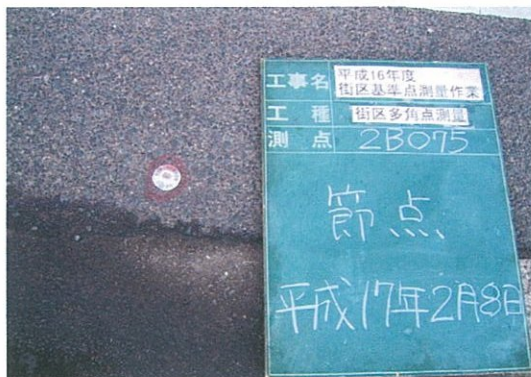 工事名 平成16年度
街区基準点測量作業
工種 街区多角点測量
測点 2B075
節点
平成17年2月8日